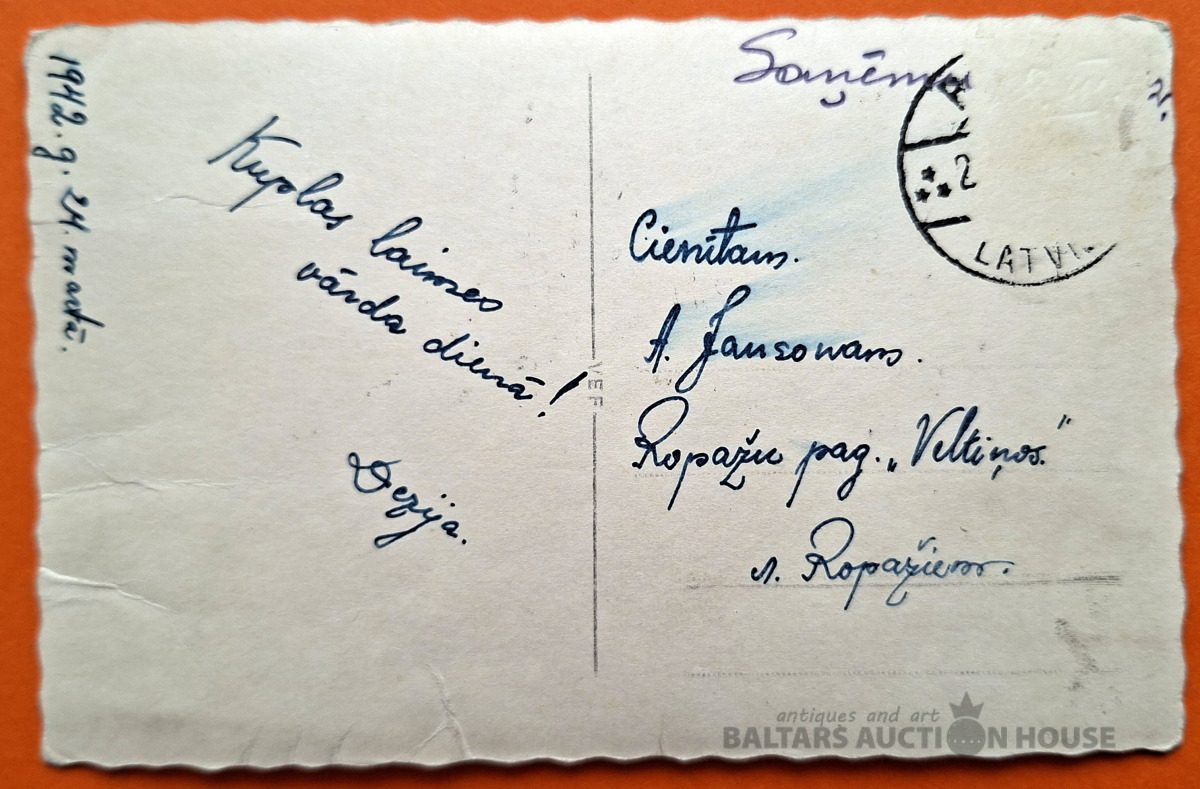 1942. g. 24. martā.
Kuplas laimes
vārda dienā!
Dezija.
VEF
Saņēmu
2
LATVI
Cienītam.
A. Jansonam.
Ropažu pag. „Veltiņos.“
Ropažiem.
antiques and art
BALTARS AUCTION HOUSE